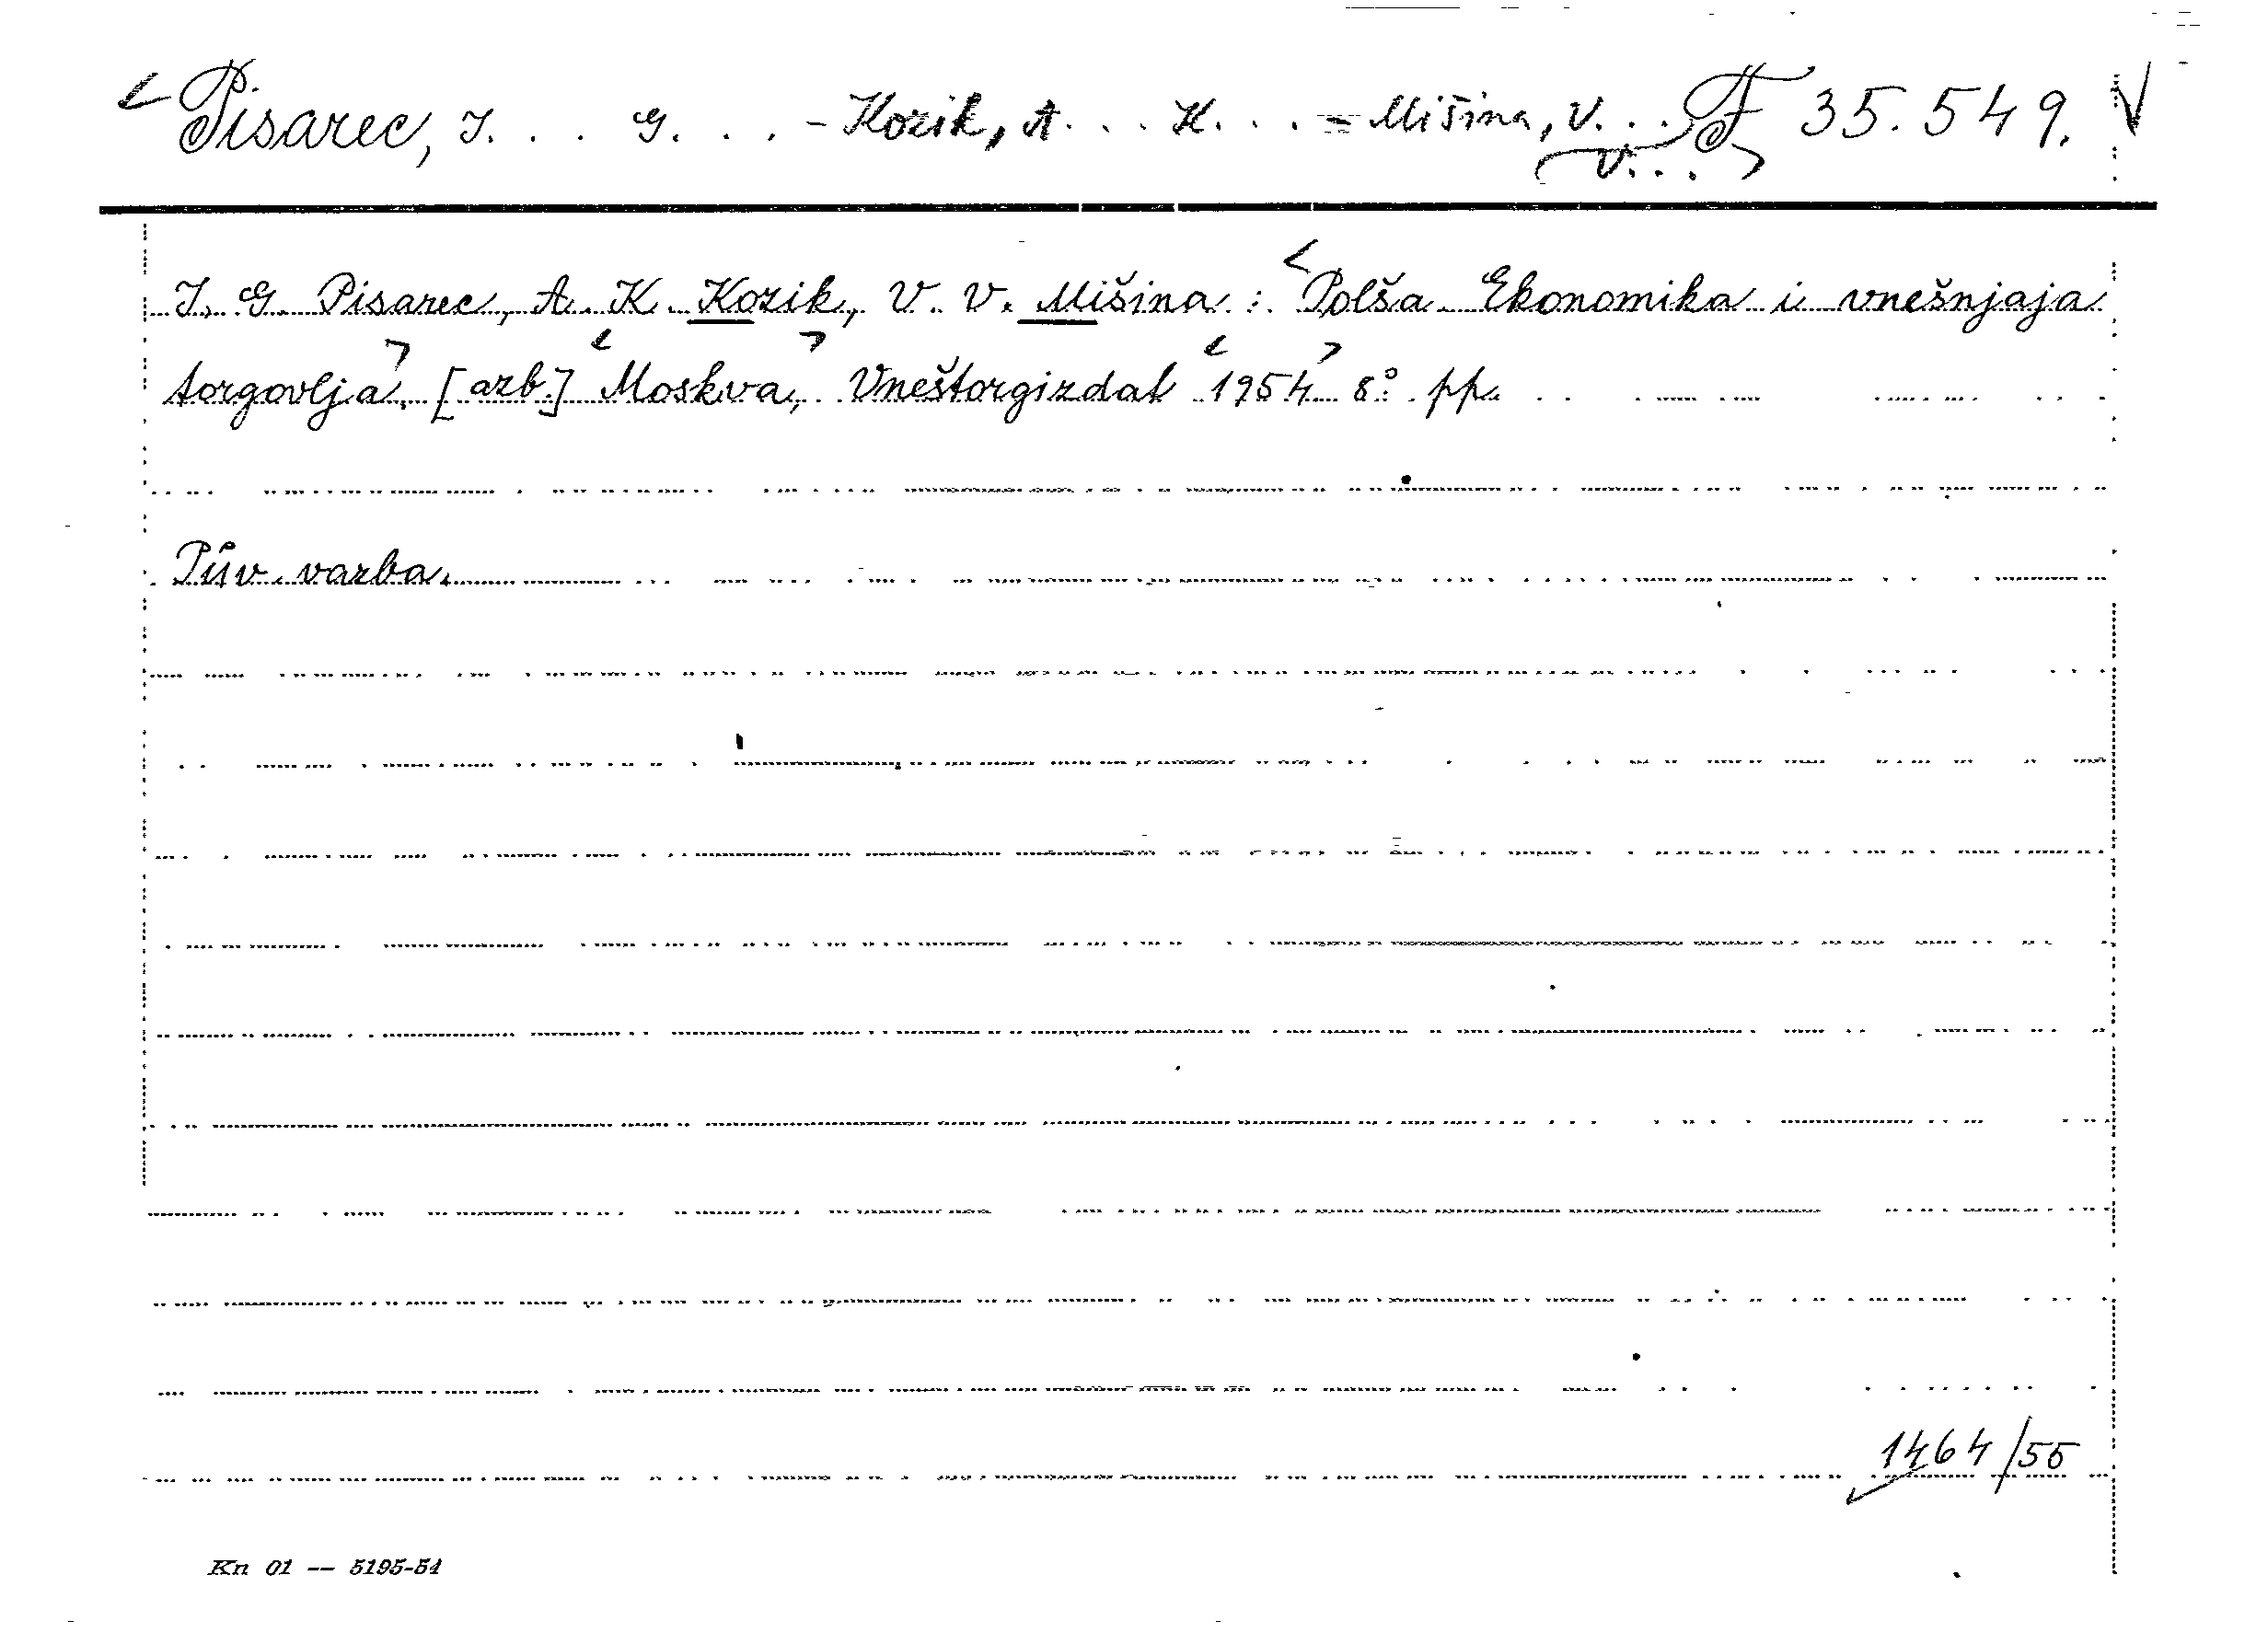 Pisarec, I... G... - Kozik, A... K... = Mišina, V... F 35.549.
V...
I. G. Pisarec, A. K. Kozik, V. V. Mišina: Polša. Ekonomika i vnešnjaja
torgovlja. [azb.] Moskva, Vneštorgizdat 1954 8° pp.
Pův. vazba.
1464/55
Kn 01 -- 5195-54